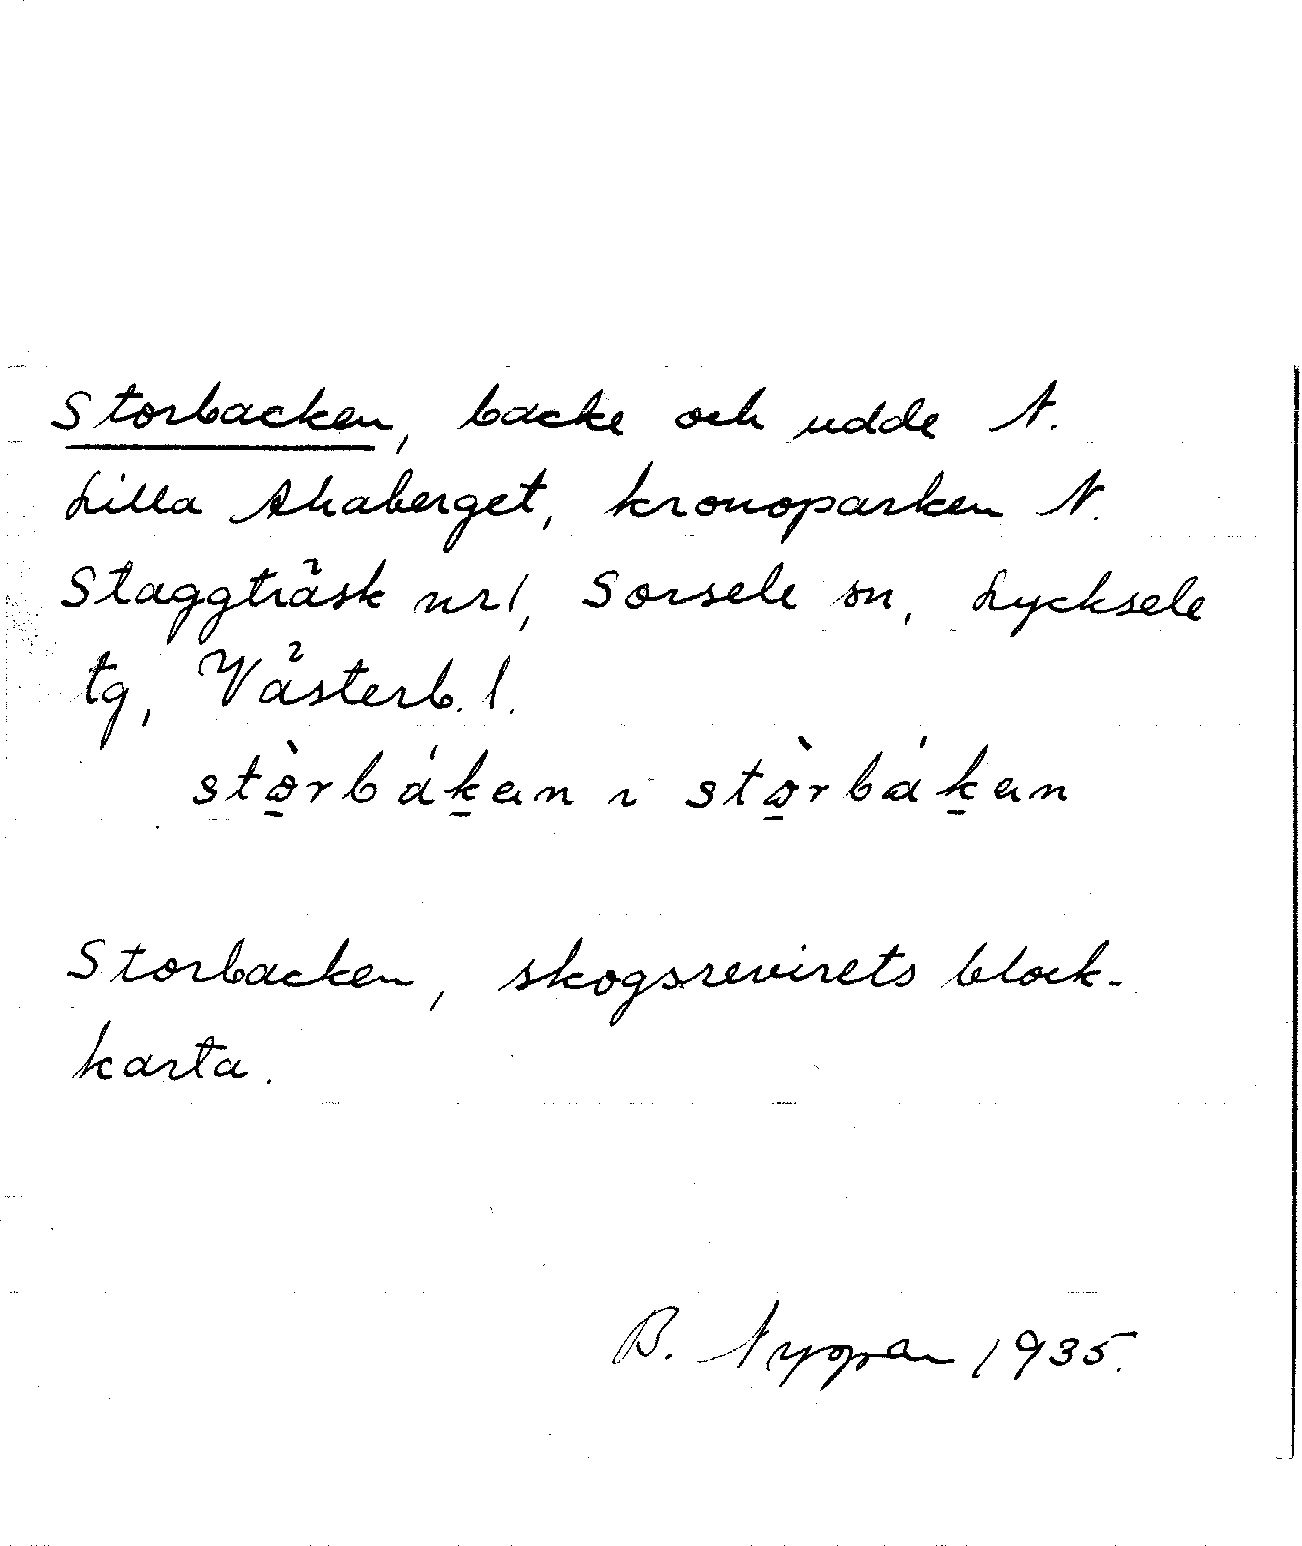 Storbacken, backe och udde N.
Lilla Akaberget, kronoparken N.
Staggträsk nr 1, Sorsele sn, Lycksele
tg, Västerb. l.
Storbacken, skogsrevirets block-
karta.
B. 1935.